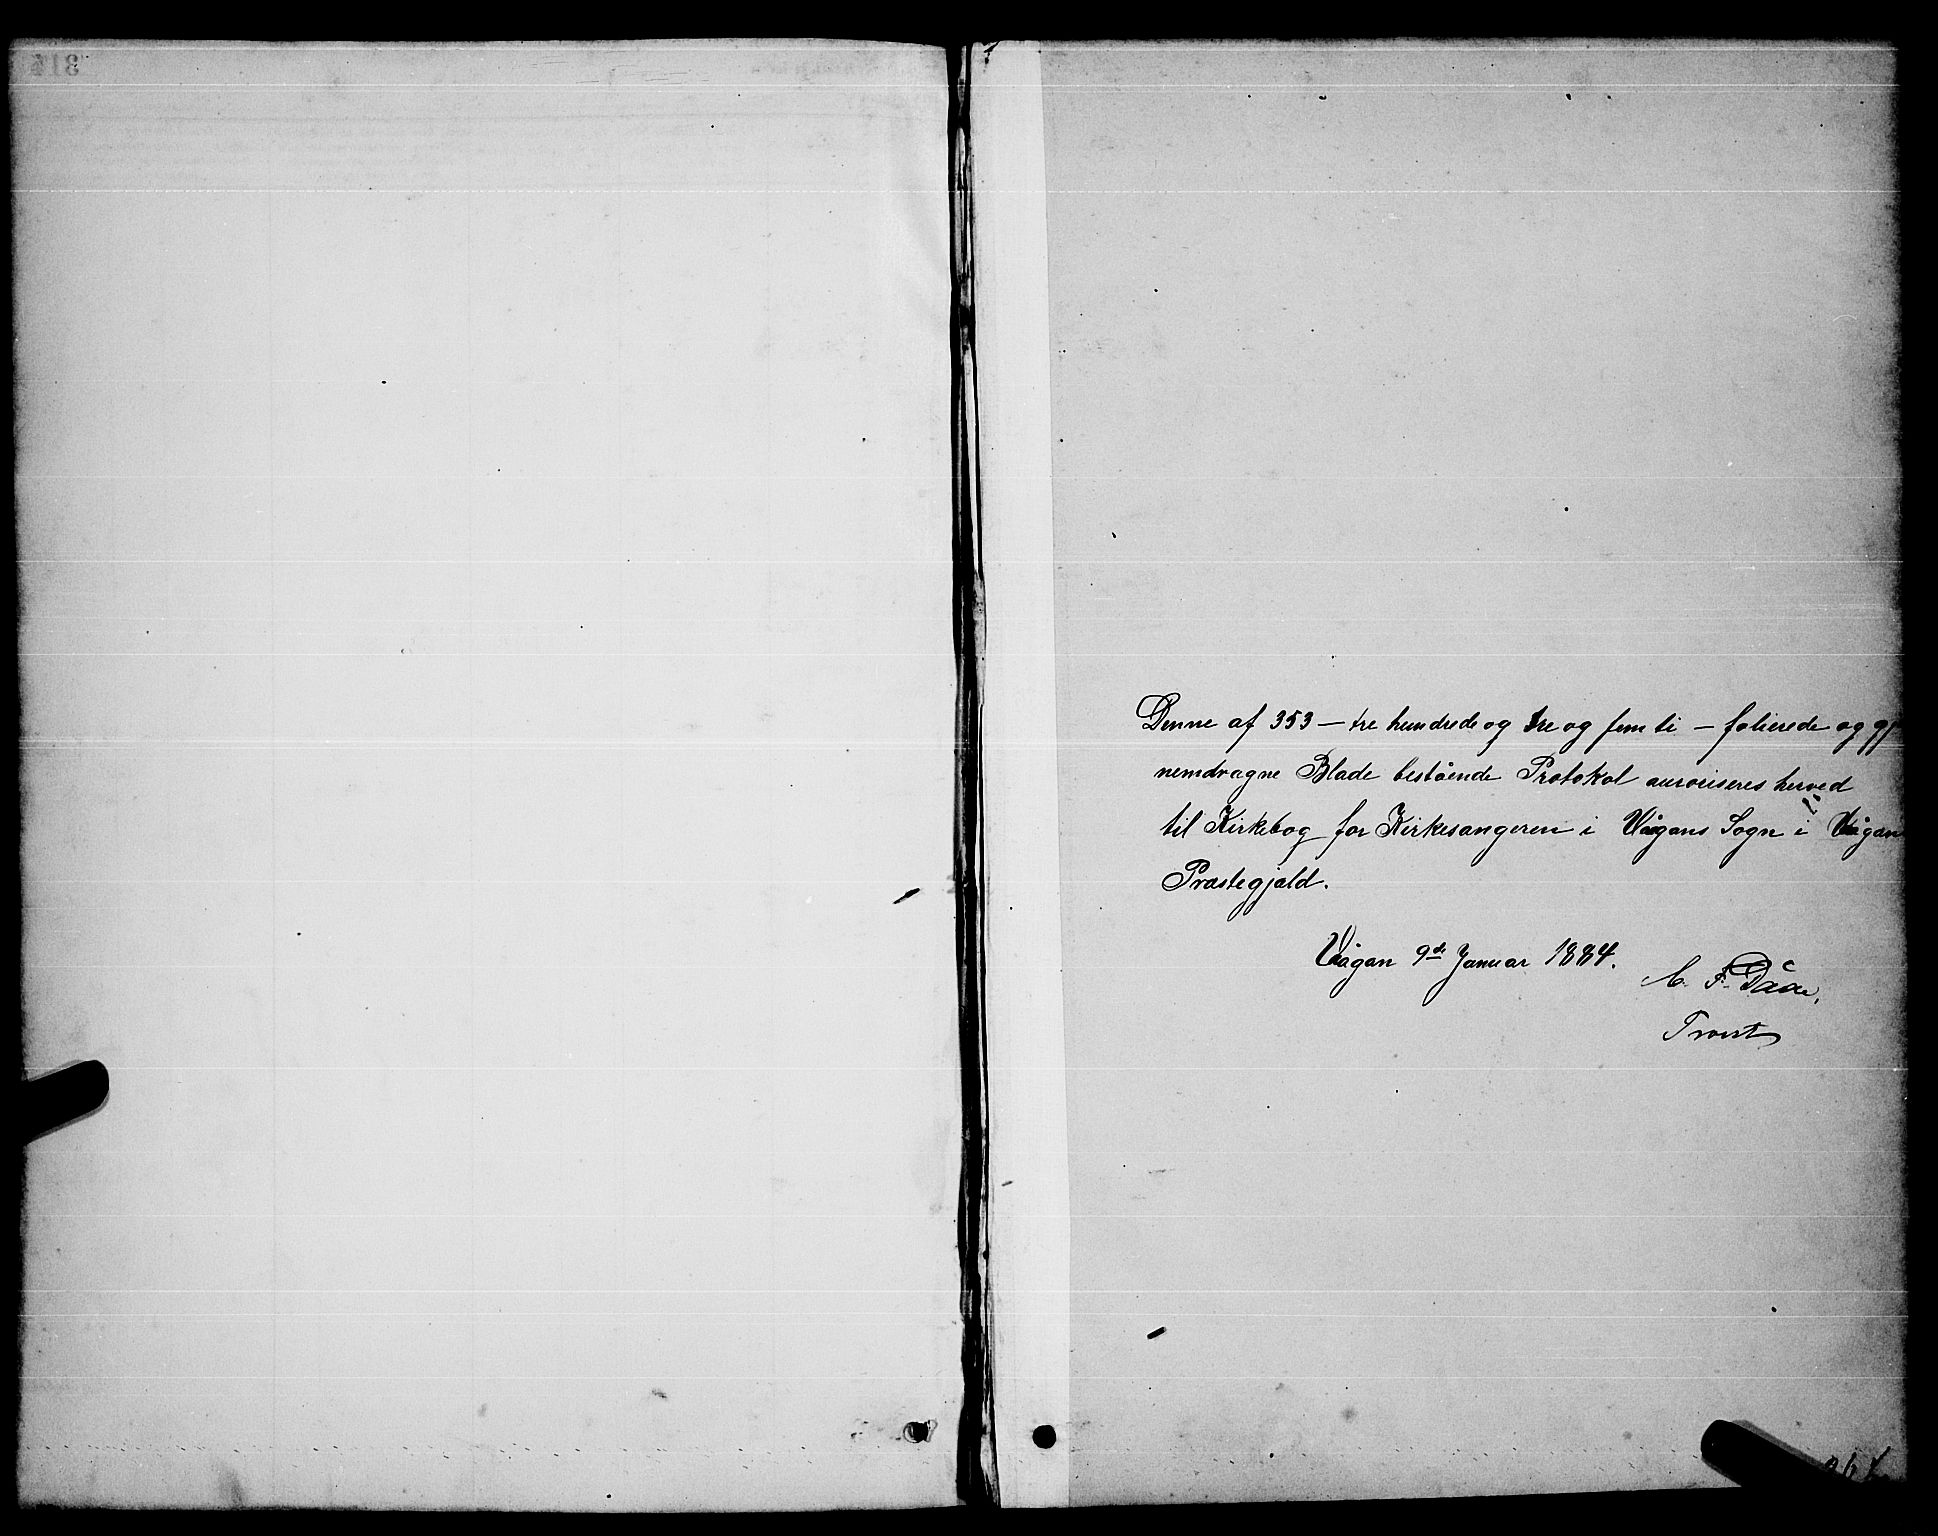 Denne af 353 — tre hundrede og tre og femti — folierede og gj
nemdragne Blade bestående Protokol autoriseres herved
til Kirkebog for Kirkesangeren i Vågans Sogn i Vågan
Præstegjæld.
Vågan 9de Januar 1884.
C. F. Daae,
Provst
314